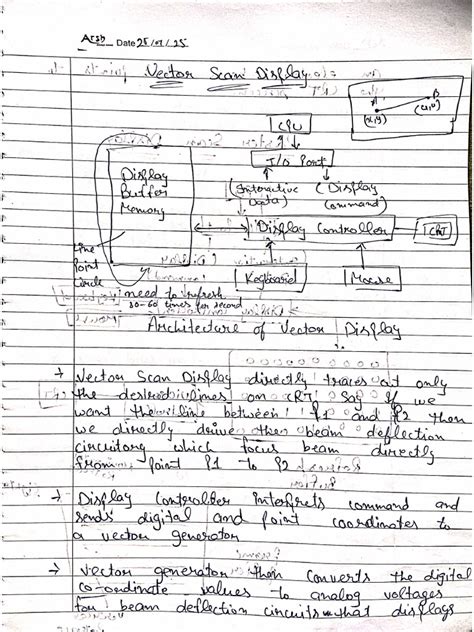 Arsh
Date 25/07/25
Vector Scan Display
A
B
(x,y)
(u,v)
CPU
I/O Port
Display
Buffer
Memory
(Interactive
Data)
(Display
Command)
Display Controller
CRT
Line
Point
Circle
Keyboard
Mouse
need to refresh
30-60 times per second
Architecture of Vector Display
→ Vector Scan Display directly traces out only
the desired lines on CRT. So If we
want the line between P1 and P2 then
we directly drive the beam deflection
circuitary which focus beam directly
from Point P1 to P2
→ Display Controller Interprets command and
sends digital and point coordinates to
a vector generator
→ Vector generator then converts the digital
co-ordinate values to analog voltages
for beam deflection circuits that displays